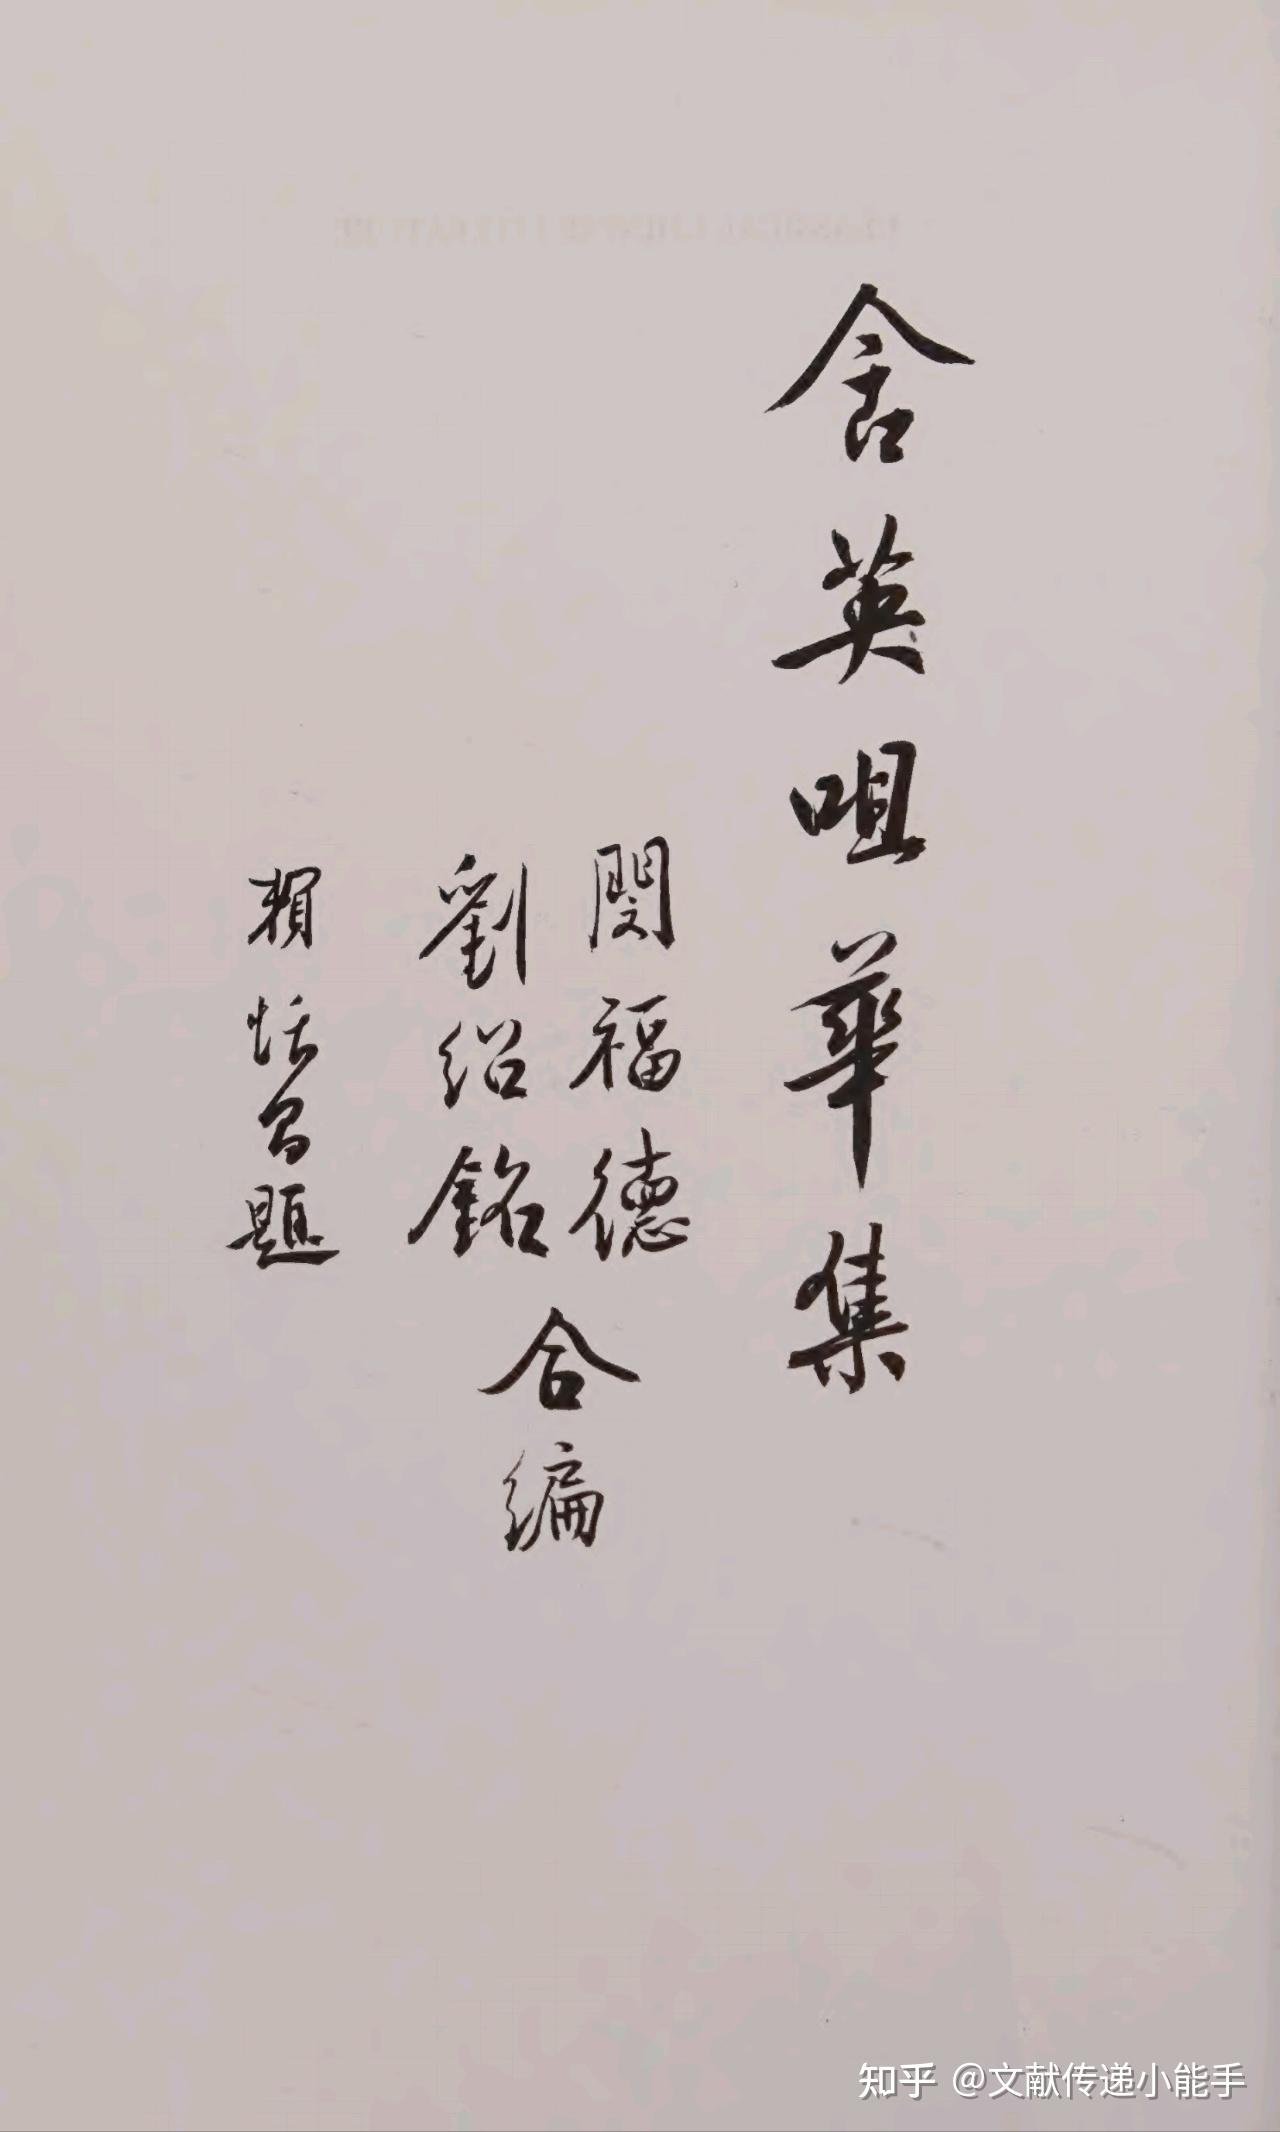 含英咀華集
閔福德
劉紹銘
合編
賴恬昌題
知乎 @文献传递小能手